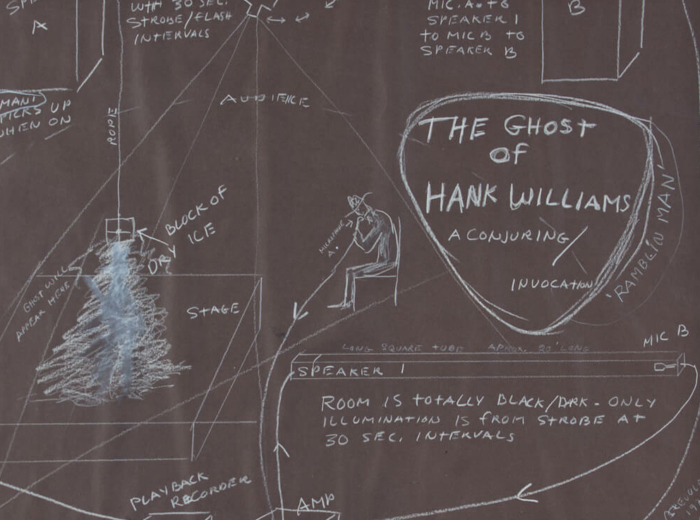 A
WITH 30 SEC.
STROBE/FLASH
INTERVALS
MIC. A. TO
SPEAKER 1
TO MIC B TO
SPEAKER B
B
PICKS UP
WHEN ON
ROPE
AUDIENCE
THE GHOST
OF
HANK WILLIAMS
A CONJURING/
INVOCATION
'RAMBLIN MAN'
BLOCK OF
DRY ICE
GHOST WILL
APPEAR HERE
STAGE
A.
LONG SQUARE TUBE APROX. 20' LONG
MIC B
SPEAKER 1
ROOM IS TOTALLY BLACK/DRK. ONLY
ILLUMINATION IS FROM STROBE AT
30 SEC. INTERVALS
PLAYBACK
RECORDER
AMP